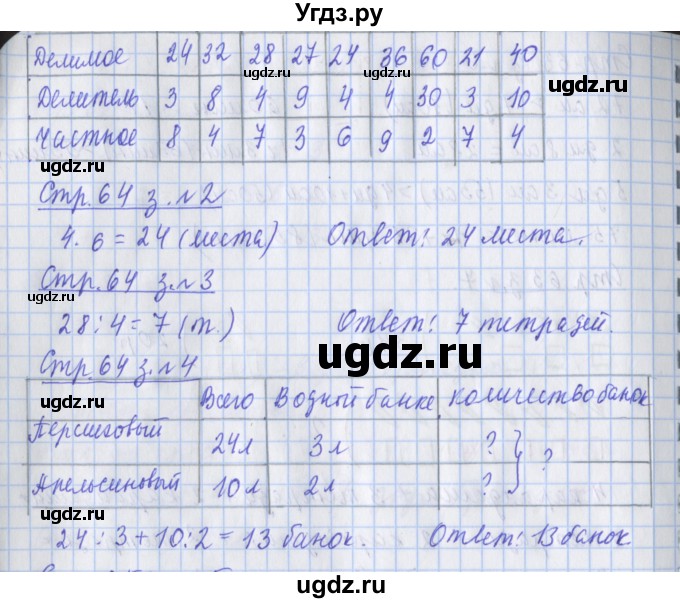 Угдз.ру
Делимое 24 32 28 27 24 36 60 21 40
Делитель 3 8 4 9 4 4 30 3 10
Частное 8 4 7 3 6 9 2 7 4
ugdz.ru ugdz.ru ugdz.ru
ugdz.ru ugdz.ru ugdz.ru
Стр. 64 з. №2
4 · 6 = 24 (места) Ответ: 24 места.
ugdz.ru ugdz.ru
Стр. 64 з. №3
ugdz.ru
28 : 4 = 7 (т.) Ответ: 7 тетрадей.
ugdz.ru
Стр. 64 з. №4
Всего В одной банке Количество банок
ugdz.ru
Персиковый 24л 3л ?
?
Апельсиновый 10л 2л ?
ugdz.ru ugdz.ru
24 : 3 + 10 : 2 = 13 банок. Ответ: 13 банок
ugdz.ru